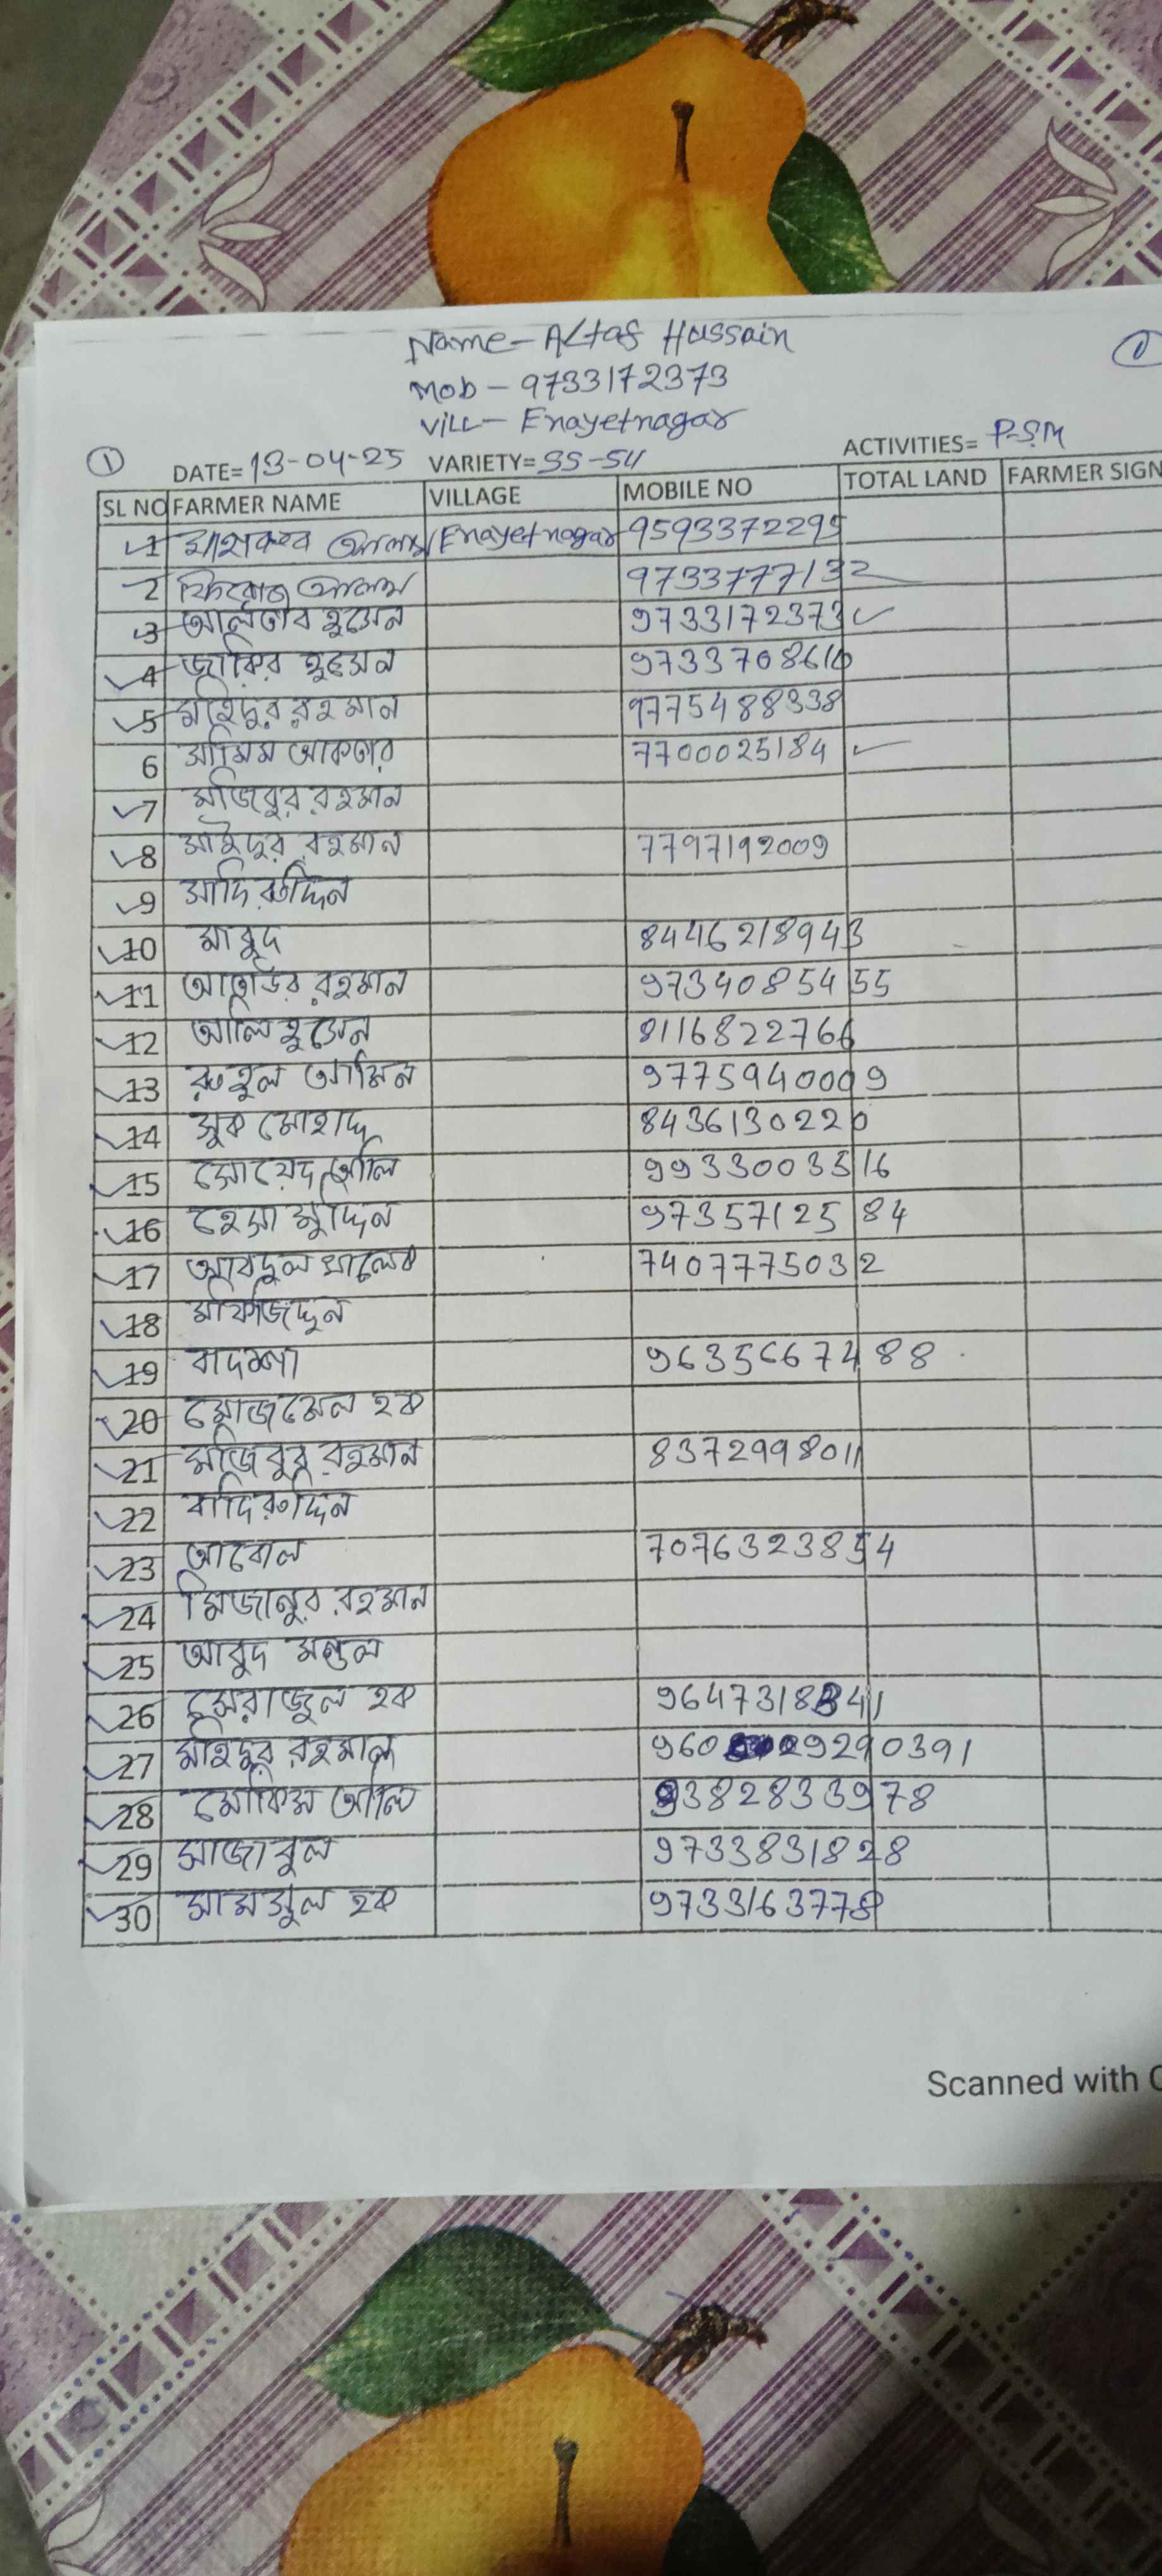 Name - Altaf Hussain
Mob - 9733172373
Vill - Enayetnagar
① DATE= 13-04-25 VARIETY= SS-54 ACTIVITIES= P-SM
SL NO FARMER NAME VILLAGE MOBILE NO TOTAL LAND FARMER SIGN
1 আলম Enayetnagar 9593372295
2 ফিরোজ আলম 9733777132
3 আলতাব হুসেন 9733172373 ✓
4 জাকির হুসেন 9733708610
5 মহিদুর রহমান 9775488338
6 সামিম আকতার 7700025184 ✓
7 মজিবুর রহমান
8 সাইদুর রহমান 7797192009
9 সাদিরুদ্দিন
10 মাবুদ 8446218943
11 আতাউর রহমান 9734085455
12 আলি হুসেন 8116822766
13 রুহুল আমিন 9775940009
14 সুক মোহাদ্দ 8436130220
15 সোয়েদ আলি 9933003516
16 হেসামুদ্দিন 9735712584
17 আবদুল খালেক 7407775032
18 মফিজিদ্দুন
19 বাদশা 9635667488
20 মোজমেল হক
21 মজিবুর রহমান 8372998011
22 বাদিরুদ্দিন
23 আবোল 7076323854
24 মিজানুর রহমান
25 আবুদ মন্ডল
26 সেরাজুল হক 9647318341
27 মহিদুর রহমান 960 29290391
28 মোকিম আলি 9382833978
29 সাজাবুল 9733831828
30 সামসুল হক 9733163778
Scanned with